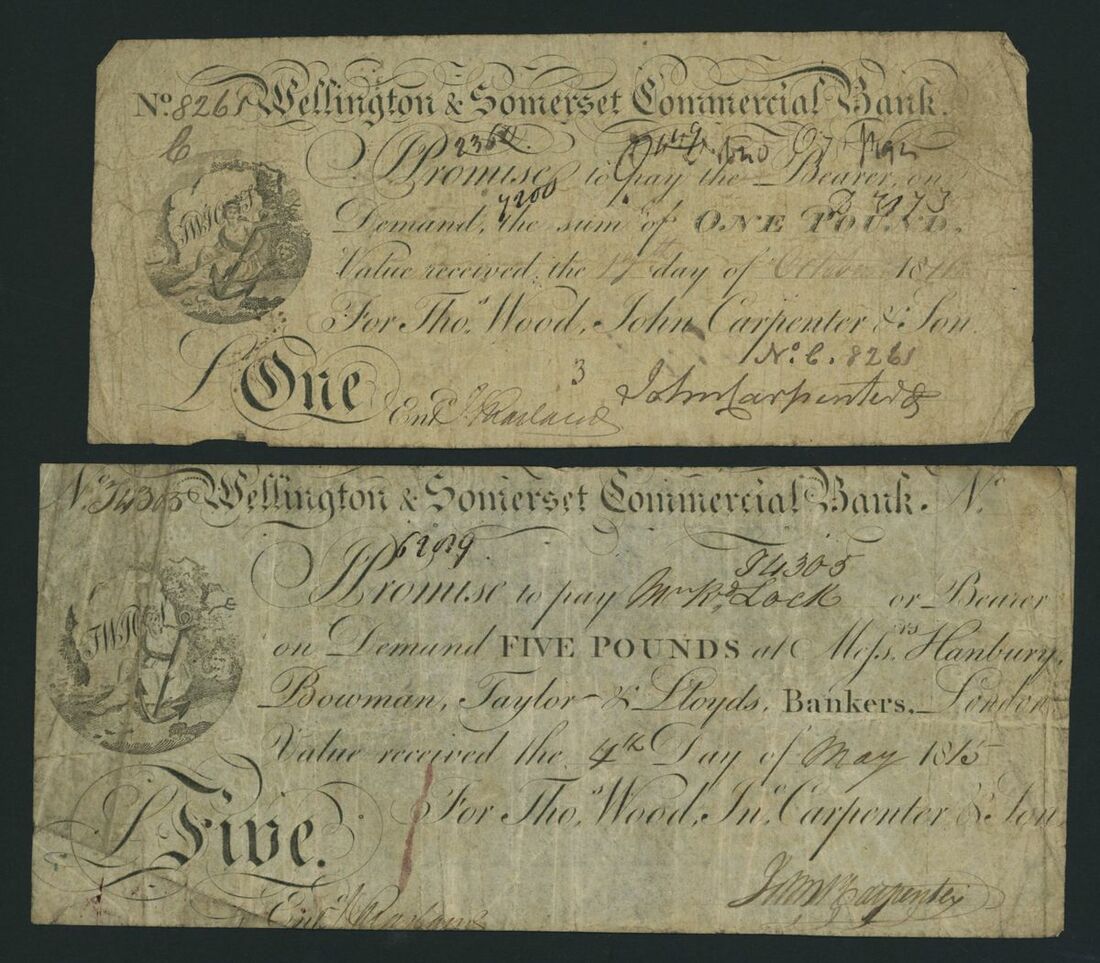 No. 8261 Wellington & Somerset Commercial Bank.
C
2364
I Promise to pay the Bearer, on
7200
Demand, the sum of ONE POUND,
Value received, the 17th day of October 181
TWJC
For Thos. Wood, John Carpenter & Son.
No. C. 8261
3
£ One
Entd.
John Carpenter
No. J4305 Wellington & Somerset Commercial Bank. No.
62029
J4305
I Promise to pay Mr Rd. Lock or Bearer
on Demand FIVE POUNDS at Messrs. Hanbury,
TWJC
Bowman, Taylor & Lloyds, Bankers, London
Value received the 4th Day of May 1815
For Thos. Wood, Jno. Carpenter & Son
£ Five.
John Carpenter
Entd.